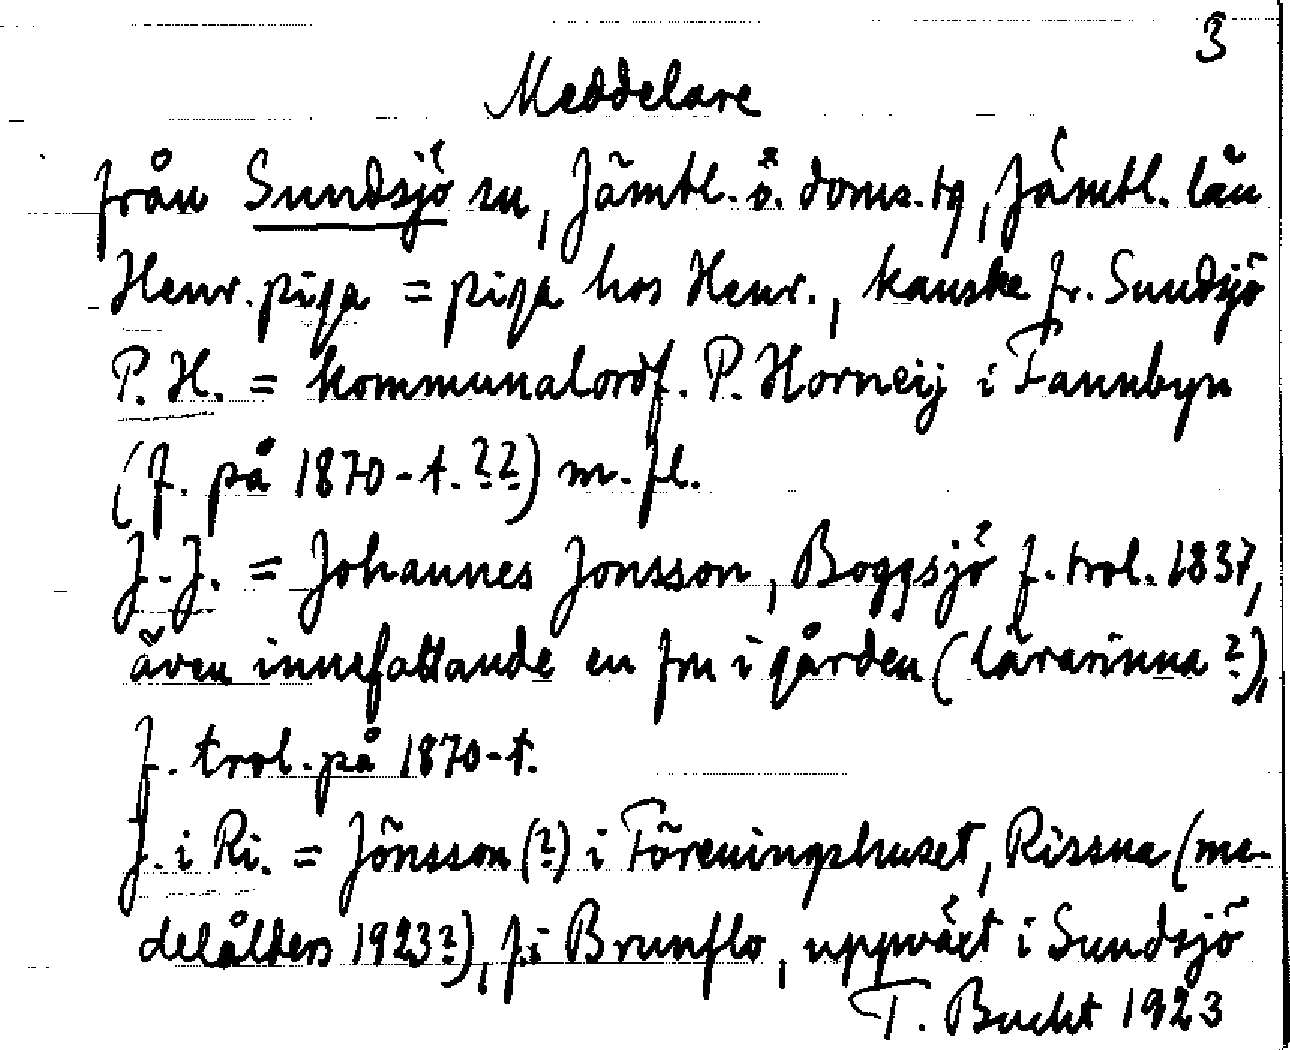 3
Meddelare
från Sundsjö sn, Jämtl. ö. doms. tg, Jämtl. län
Henr. piga = piga hos Henr., kanske fr. Sundsjö
P. H. = kommunalordf. P. Horneij i Fannbyn
(f. på 1870-t. ??) m. fl.
J. J. = Johannes Jonsson, Boggsjö f. trol. 1837,
även innefattande en fru i gården (lärarinna ?),
f. trol. på 1870-t.
J. i Ri. = Jönsson (?) i Föreningshuset, Rissna (me-
delålders 1923?), f. i Brunflo, uppväxt i Sundsjö
T. Bucht 1923